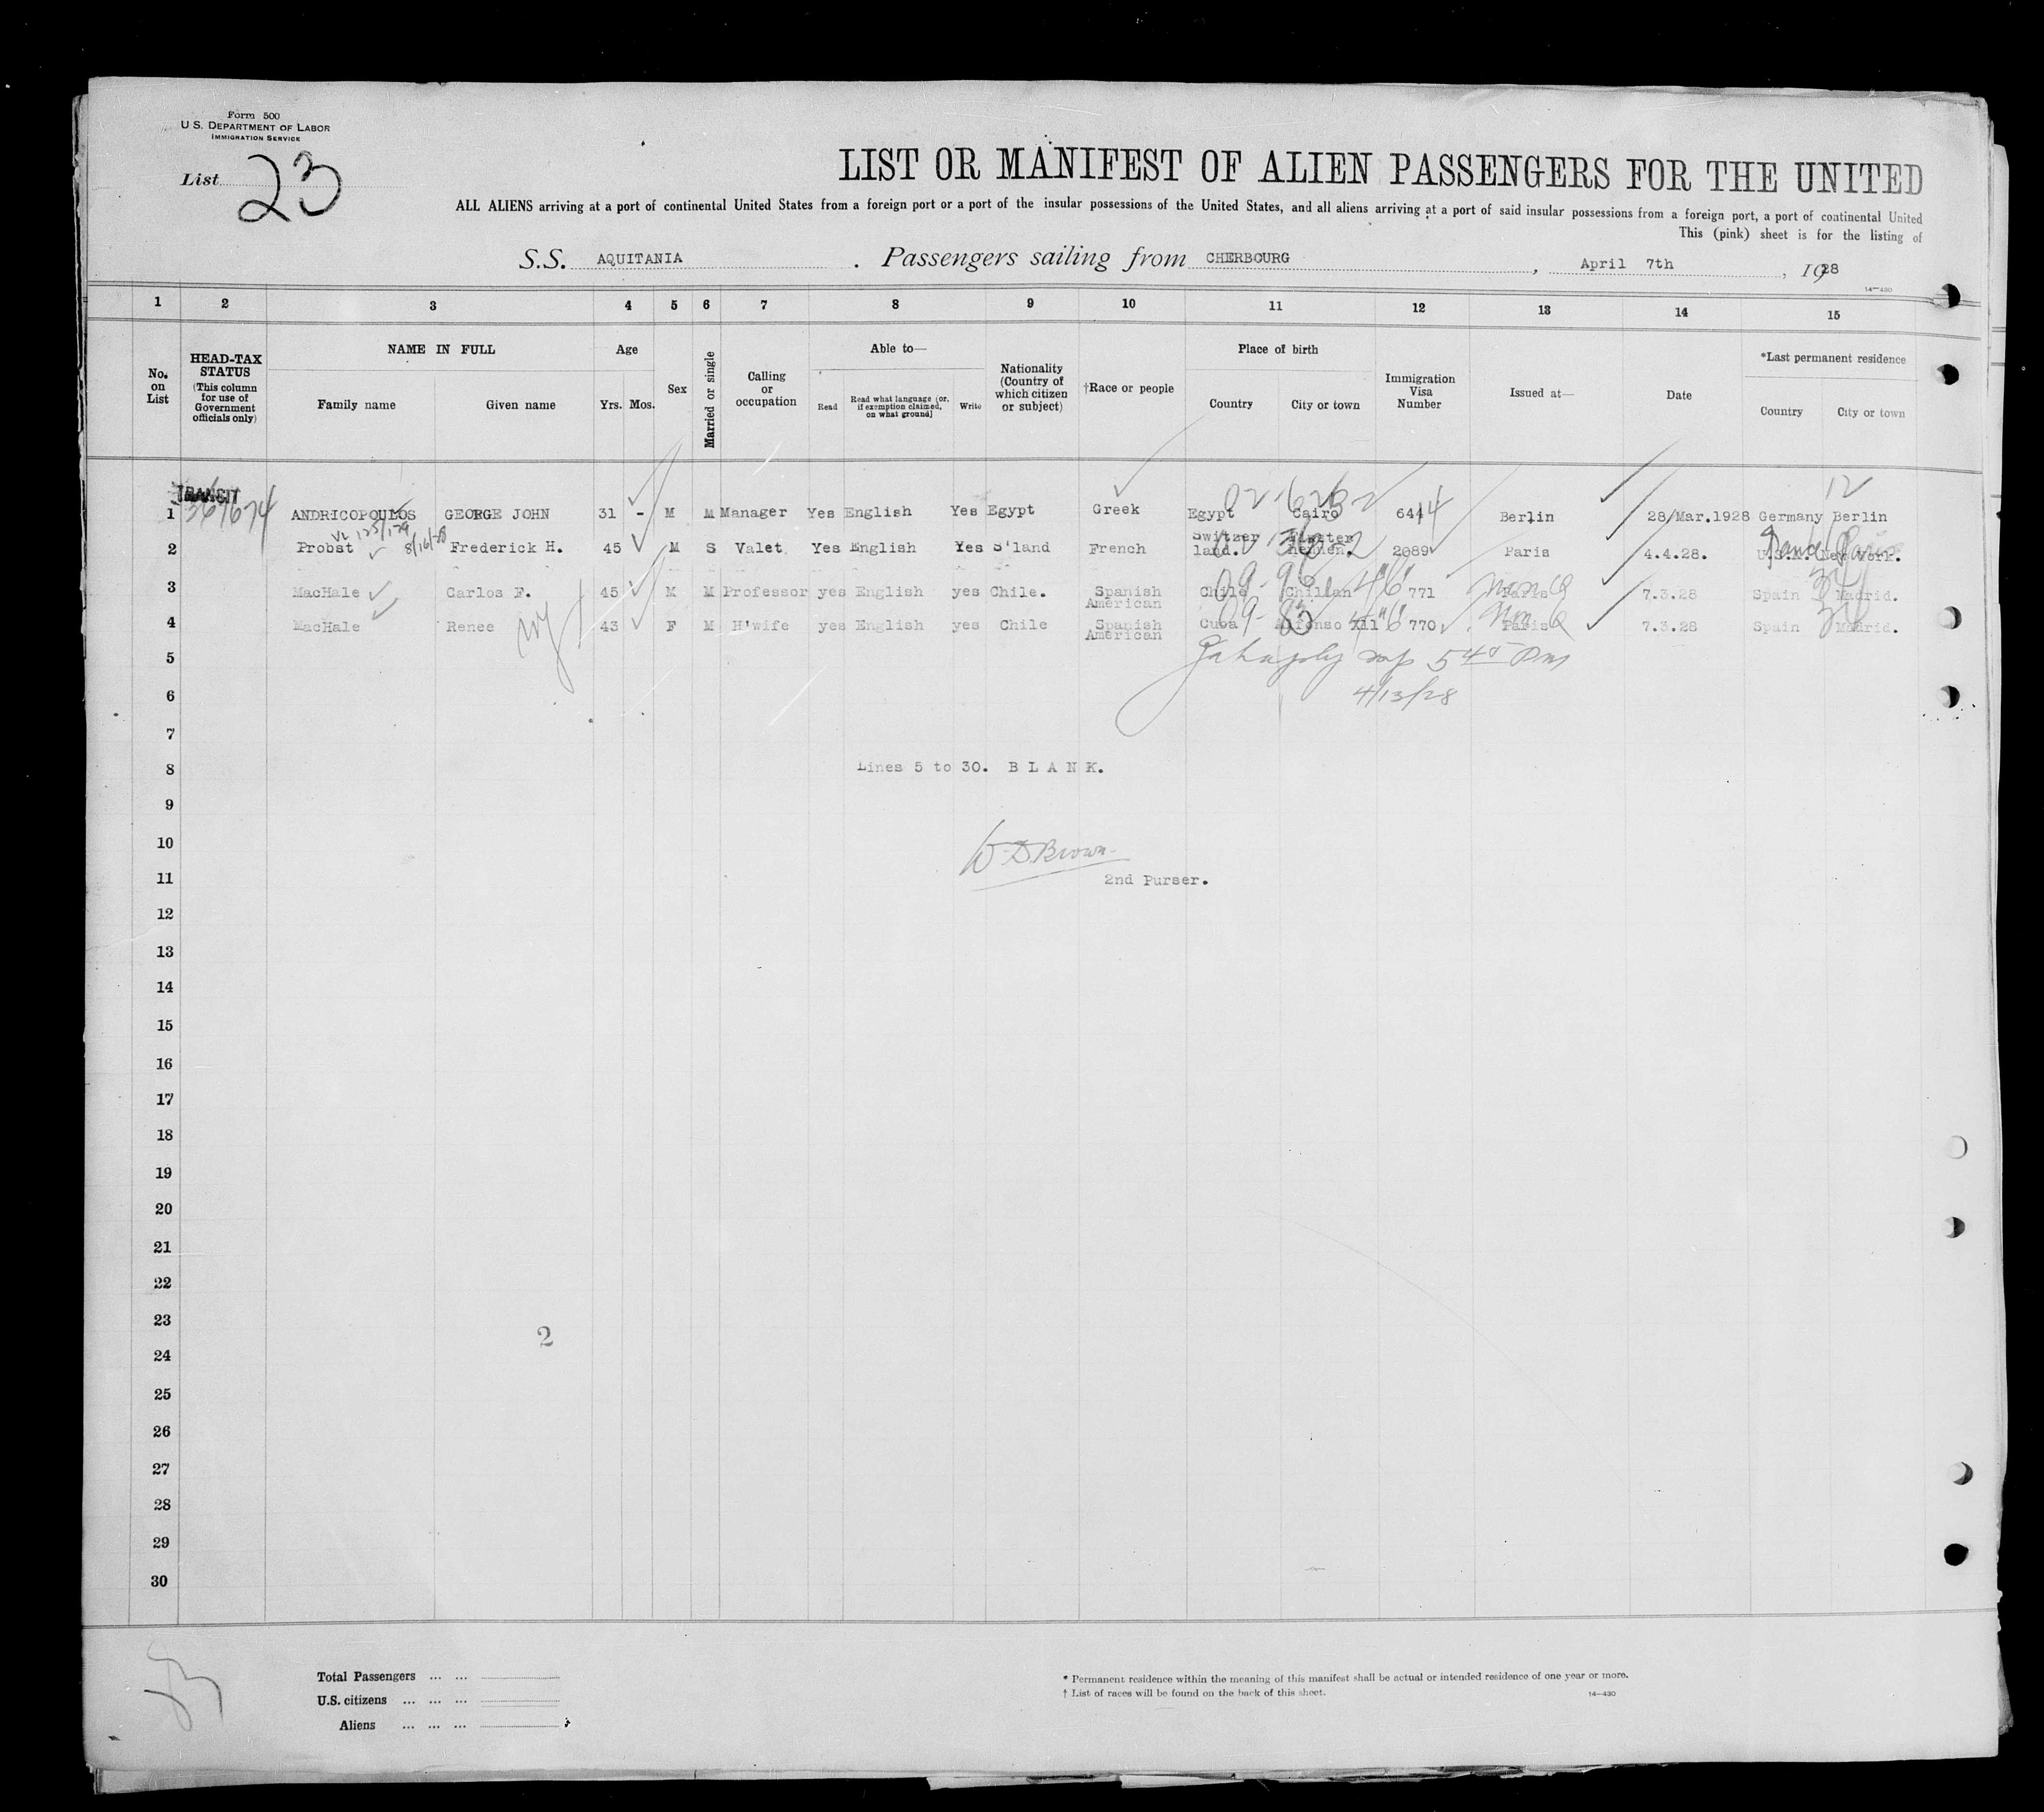 Form 500
U.S. DEPARTMENT OF LABOR
IMMIGRATION SERVICE
List 23
LIST OR MANIFEST OF ALIEN PASSENGERS FOR THE UNITED
ALL ALIENS arriving at a port of continental United States from a foreign port or a port of the insular possessions of the United States, and all aliens arriving at a port of said insular possessions from a foreign port, a port of continental United
This (pink) sheet is for the listing of
S.S. AQUITANIA . Passengers sailing from CHERBOURG , April 7th , 1928
14—430
1 2 3 4 5 6 7 8 9 10 11 12 13 14 15
No. on List
HEAD-TAX STATUS (This column for use of Government officials only)
NAME IN FULL
Family name Given name
Age
Yrs. Mos.
Sex
Married or single
Calling or occupation
Able to—
Read Read what language (or, if exemption claimed, on what ground) Write
Nationality (Country of which citizen or subject)
†Race or people
Place of birth
Country City or town
Immigration Visa Number
Issued at—
Date
*Last permanent residence
Country City or town
TRANSIT
12
1 ANDRICOPOULOS GEORGE JOHN 31 - M M Manager Yes English Yes Egypt Greek Egypt Cairo 6444 Berlin 28/Mar.1928 Germany Berlin
8/16/28
2 Probst Frederick H. 45 M S Valet Yes English Yes S'land French Switzerland. 2089 Paris 4.4.28. U.S.A. New York.
3 MacHale Carlos F. 45 M M Professor yes English yes Chile. Spanish American Chile Chillan 771 Paris 7.3.28 Spain Madrid.
4 MacHale Renee 43 F M H'wife yes English yes Chile Spanish American Cuba Alfonso XII 770 Paris 7.3.28 Spain Madrid.
5
6 4/13/28
7
8 Lines 5 to 30. B L A N K.
9
10 W.D.Brown
11 2nd Purser.
12
13
14
15
16
17
18
19
20
21
22
23
2
24
25
26
27
28
29
30
Total Passengers ... ...
U.S. citizens ... ... ...
Aliens ... ... ...
* Permanent residence within the meaning of this manifest shall be actual or intended residence of one year or more.
† List of races will be found on the back of this sheet.
14—430